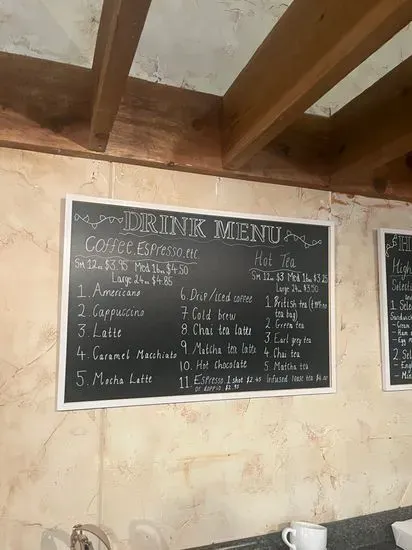 DRINK MENU
Coffee, Espresso, etc.
Sm 12oz $3.95 Med 16oz $4.50
Large 24oz $4.85
1. Americano
2. Cappuccino
3. Latte
4. Caramel Macchiato
5. Mocha Latte
6. Drip/iced coffee
7. Cold brew
8. Chai tea latte
9. Matcha tea latte
10. Hot Chocolate
11 Espresso 1 shot $2.45
or doppio $2.95
Hot Tea
Sm 12oz $3 Med 16oz $3.25
Large 24oz $3.50
1. British tea
tea bag)
2. Green tea
3. Earl grey tea
4. Chai tea
5. Matcha tea
Infused loose tea $4.00
H
High
Selecti
1. Sele
Sandwic
2. Sel